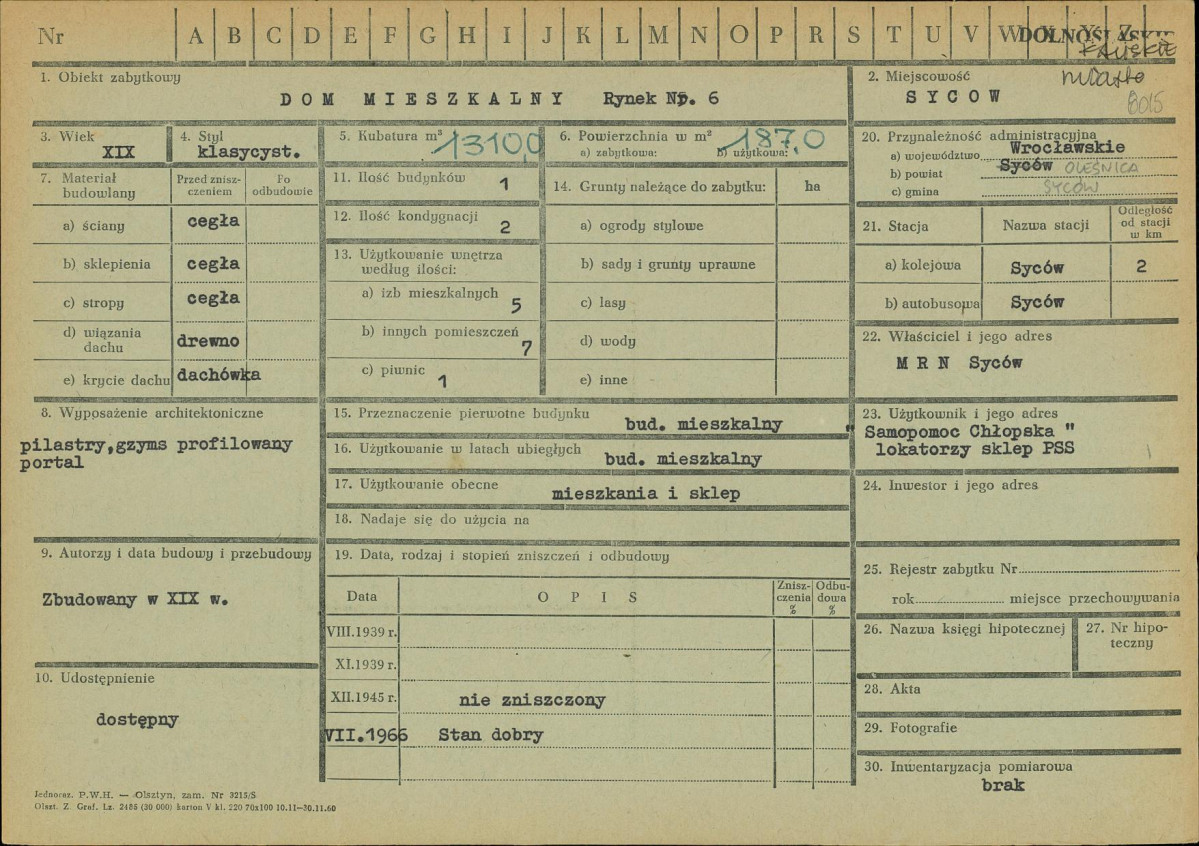 Nr A B C D E F G H I J K L M N O P R S T U V W X Y Z
DOLNOŚLĄSKIE
miasto
8015
1. Obiekt zabytkowy
DOM MIESZKALNY Rynek Nr. 6
2. Miejscowość
SYCOW
3. Wiek
XIX
4. Styl
klasycyst.
5. Kubatura m³ 1310,0
6. Powierzchnia w m² 187,0
a) zabytkowa: b) użytkowa:
7. Materiał budowlany
Przed zniszczeniem
Po odbudowie
a) ściany cegła
b) sklepienia cegła
c) stropy cegła
d) wiązania dachu drewno
e) krycie dachu dachówka
8. Wyposażenie architektoniczne
pilastry,gzyms profilowany
portal
9. Autorzy i data budowy i przebudowy
Zbudowany w XIX w.
10. Udostępnienie
dostępny
11. Ilość budynków 1
12. Ilość kondygnacji 2
13. Użytkowanie wnętrza
według ilości:
a) izb mieszkalnych 5
b) innych pomieszczeń 7
c) piwnic 1
14. Grunty należące do zabytku: ha
a) ogrody stylowe
b) sady i grunty uprawne
c) lasy
d) wody
e) inne
15. Przeznaczenie pierwotne budynku bud. mieszkalny
16. Użytkowanie w latach ubiegłych bud. mieszkalny
17. Użytkowanie obecne mieszkania i sklep
18. Nadaje się do użycia na
19. Data, rodzaj i stopień zniszczeń i odbudowy
Data OPIS Zniszczenia % Odbudowa %
VIII.1939 r.
XI.1939 r.
XII.1945 r. nie zniszczony
VII.1966 Stan dobry
20. Przynależność administracyjna
a) województwo Wrocławskie
b) powiat Syców OLEŚNICA
c) gmina SYCÓW
21. Stacja Nazwa stacji Odległość od stacji w km
a) kolejowa Syców 2
b) autobusowa Syców
22. Właściciel i jego adres
MRN Syców
23. Użytkownik i jego adres
" Samopomoc Chłopska "
lokatorzy sklep PSS
24. Inwestor i jego adres
25. Rejestr zabytku Nr
rok miejsce przechowywania
26. Nazwa księgi hipotecznej
27. Nr hipoteczny
28. Akta
29. Fotografie
30. Inwentaryzacja pomiarowa
brak
Jednoraz. P.W.H. — Olsztyn, zam. Nr 3215/S
Olszt. Z. Graf. Lz. 2485 (30 000) karton V kl. 220 70x100 10.11—30.11.60